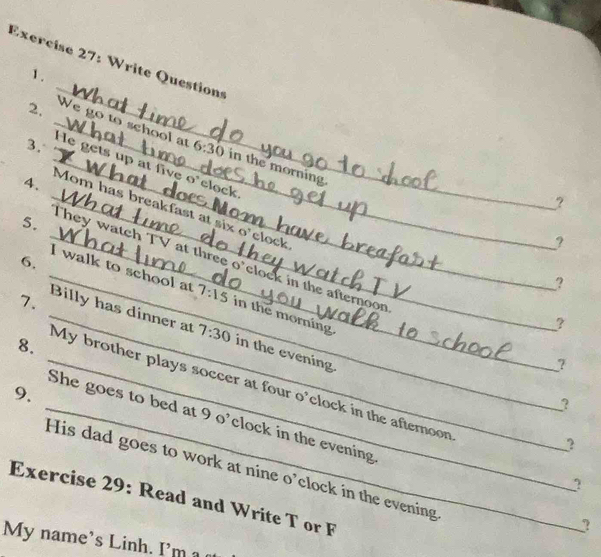 Exercise 27: Write Questions
1. What time do you go to school ?
We go to school at 6:30 in the morning.
2. What time does he get up ?
He gets up at five o'clock.
3. What does Mom have breafast ?
Mom has breakfast at six o'clock.
4. What time do they watch TV ?
They watch TV at three o'clock in the afternoon.
5. What time do you walk to school ?
I walk to school at 7:15 in the morning.
6. ?
Billy has dinner at 7:30 in the evening.
7. ?
My brother plays soccer at four o'clock in the afternoon.
8. ?
She goes to bed at 9 o'clock in the evening.
9. ?
His dad goes to work at nine o'clock in the evening.
Exercise 29: Read and Write T or F
My name's Linh. I'm a